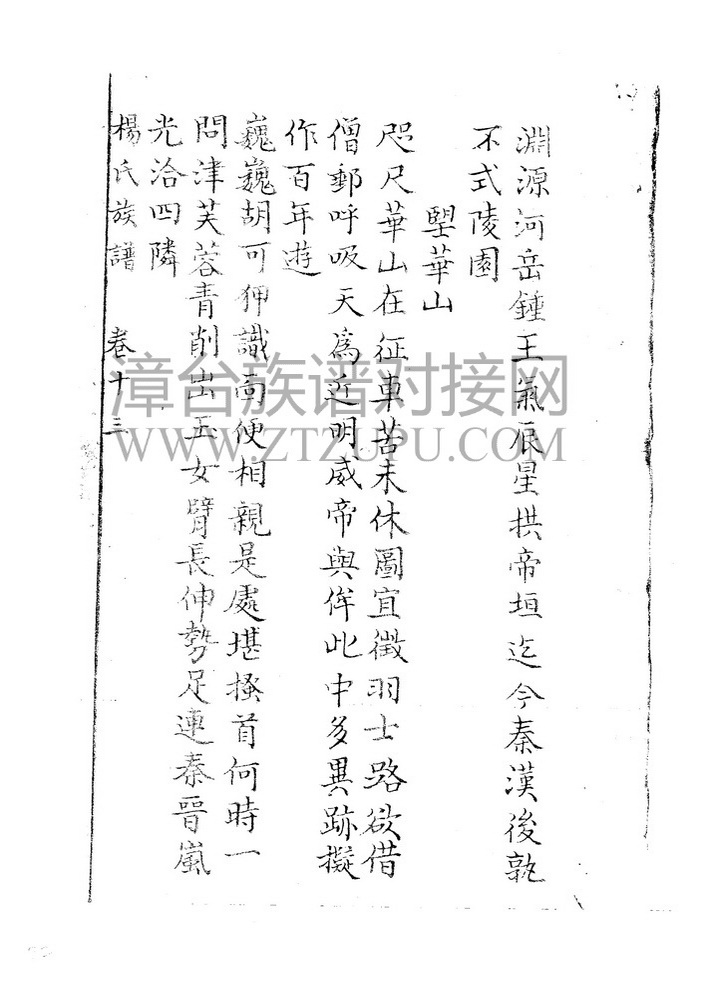 淵源河岳鍾王氣辰星拱帝垣迄今秦漢後孰
不式陵園
望華山
咫尺華山在征車苦未休圖宜徵羽士路欲借
僧郵呼吸天為近明威帝與侔此中多異跡擬
作百年遊
巍巍胡可狎識面便相親是處堪搔首何時一
問津芙蓉青削出玉女臂長伸勢足連秦晉嵐
光洽四隣
楊氏族譜 卷十三
漳台族谱对接网
WWW.ZTZUPU.COM